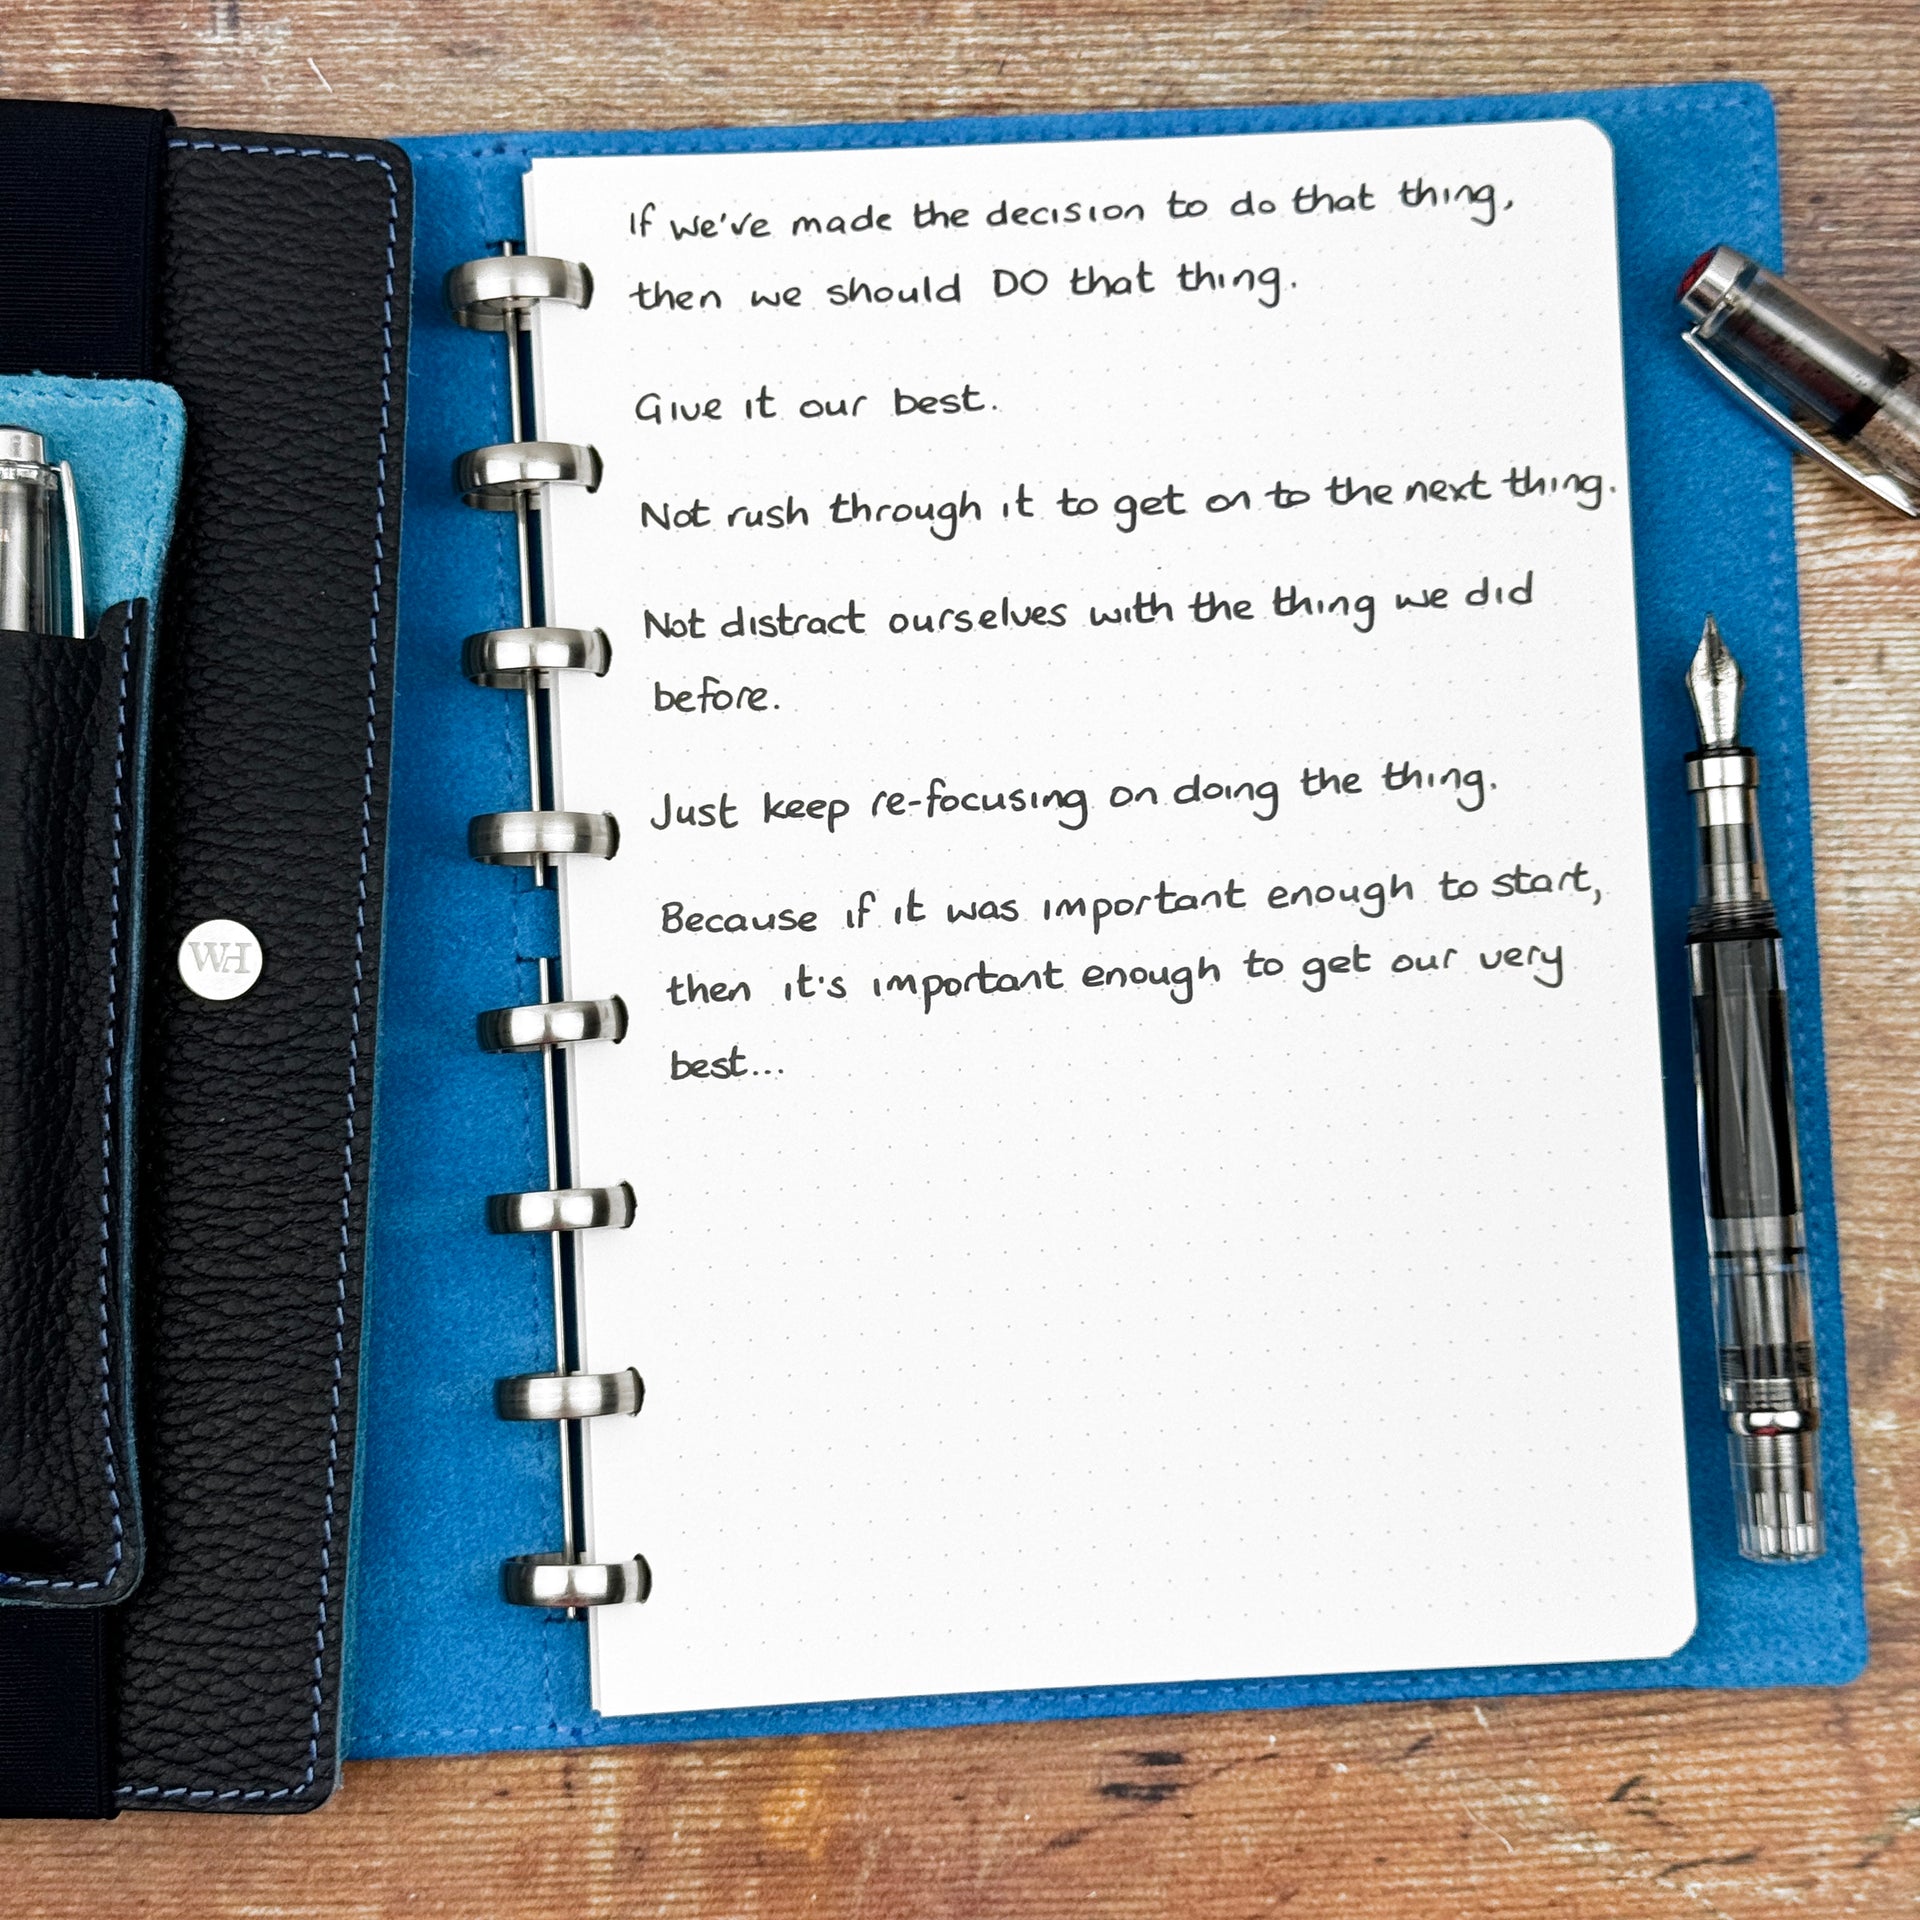 If we've made the decision to do that thing,
then we should DO that thing.
Give it our best.
Not rush through it to get on to the next thing.
Not distract ourselves with the thing we did
before.
Just keep re-focusing on doing the thing.
Because if it was important enough to start,
then it's important enough to get our very
best...
WH